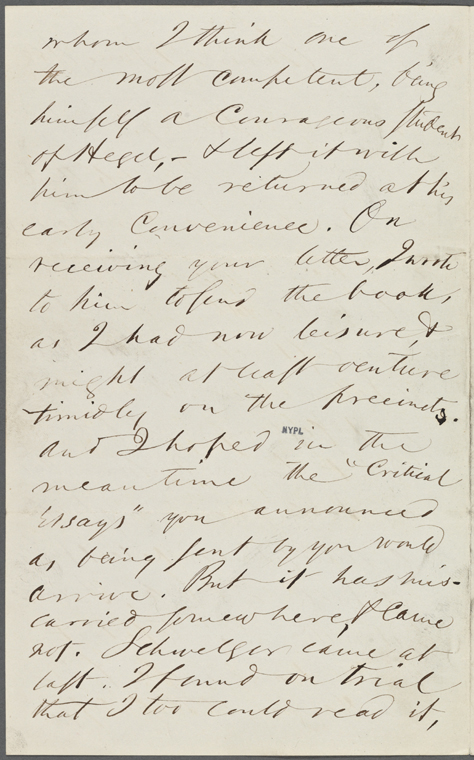 whom I think one of
the most competent, being
himself a Courageous student
of Hegel, – & left it with
him to be returned at his
early Convenience. On
receiving your letter, I wrote
to him to send the book,
as I had now leisure, &
might at least venture
timidly on the precincts.
and I hoped in the
NYPL
meantime the "Critical
Essays" you announced
as being sent by you would
arrive. But it has mis-
carried somewhere, & came
not. Schwelger came at
last. I found on trial
that I too could read it,